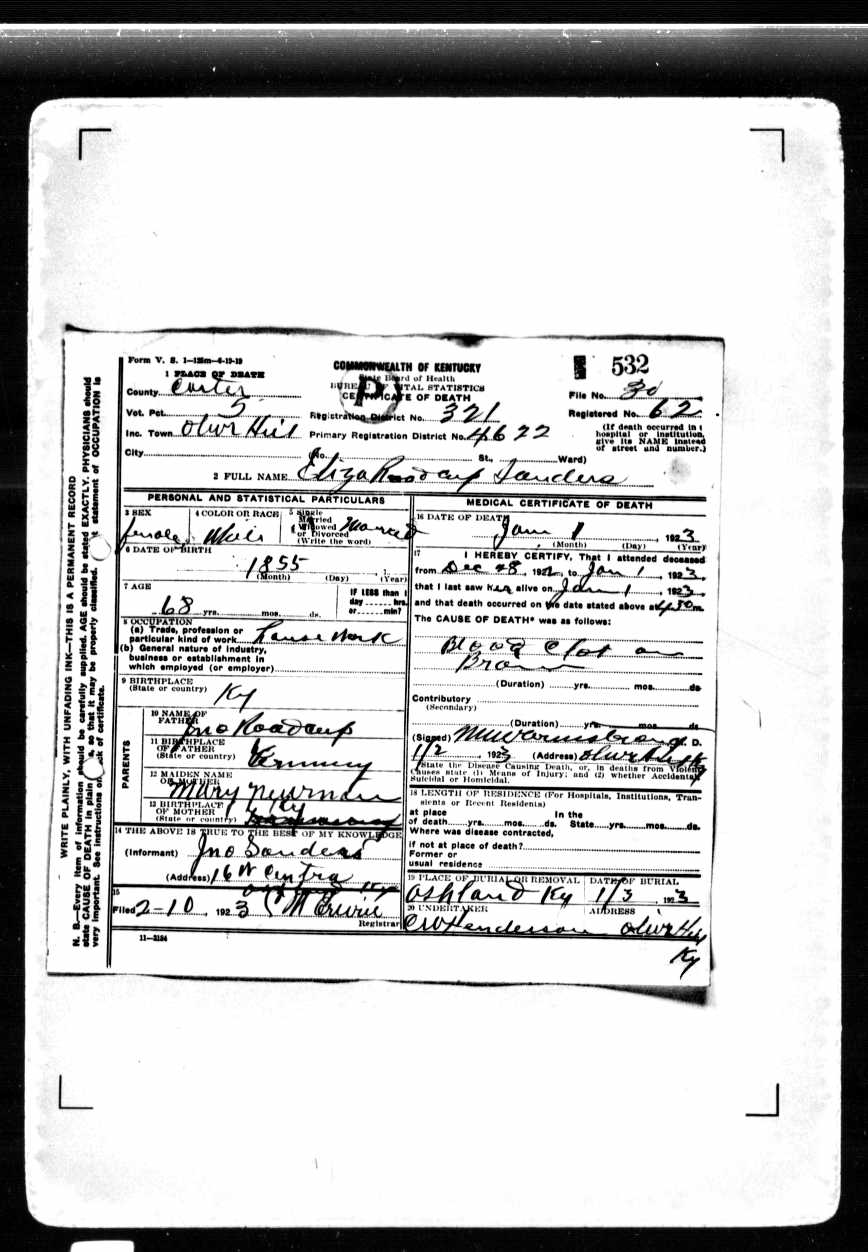 Form V. S. 1—125m—4-19-19
1 PLACE OF DEATH
COMMONWEALTH OF KENTUCKY
State Board of Health
BUREAU OF VITAL STATISTICS
CERTIFICATE OF DEATH
532
County Carter
File No. 30
Vot. Pct. 5
Registration District No. 321
Registered No. 62
Inc. Town Olive Hill
Primary Registration District No. 4622
(If death occurred in a hospital or institution, give its NAME instead of street and number.)
City
No. St., Ward)
2 FULL NAME Eliza Roadcup Sanders
PERSONAL AND STATISTICAL PARTICULARS
3 SEX female
4 COLOR OR RACE
5 Single Married Widowed or Divorced (Write the word) Married
6 DATE OF BIRTH 1855
(Month) (Day) (Year)
7 AGE
68 yrs. mos. ds.
IF LESS than 1 day hrs. or min?
8 OCCUPATION
(a) Trade, profession or particular kind of work house work
(b) General nature of industry, business or establishment in which employed (or employer)
9 BIRTHPLACE
(State or country) Ky
PARENTS
10 NAME OF FATHER Jno Roadcup
11 BIRTHPLACE OF FATHER
(State or country)
12 MAIDEN NAME OF MOTHER Mary Newman
13 BIRTHPLACE OF MOTHER
(State or country) Ky
14 THE ABOVE IS TRUE TO THE BEST OF MY KNOWLEDGE
(Informant) Jno Sanders
(Address) 16 W Central
15
Filed 2-10, 1923 Registrar
11—3184
MEDICAL CERTIFICATE OF DEATH
16 DATE OF DEATH Jan 1, 1923
(Month) (Day) (Year)
17 I HEREBY CERTIFY, That I attended deceased
from Dec 28, 1922, to Jan 1, 1923,
that I last saw her alive on Jan 1, 1923,
and that death occurred on the date stated above at 430 m.
The CAUSE OF DEATH* was as follows:
Blood Clot on
Brain
(Duration) yrs. mos. ds.
Contributory
(Secondary)
(Duration) yrs. mos. ds.
(Signed) Armstrong M. D.
1/2, 1923 (Address) Olive Hill Ky
*State the Disease Causing Death, or, in deaths from Violent Causes state (1) Means of Injury; and (2) whether Accidental, Suicidal or Homicidal.
18 LENGTH OF RESIDENCE (For Hospitals, Institutions, Transients or Recent Residents)
at place of death yrs. mos. ds. In the State yrs. mos. ds.
Where was disease contracted,
if not at place of death?
Former or
usual residence
19 PLACE OF BURIAL OR REMOVAL Ashland Ky
DATE OF BURIAL 1/3, 1923
20 UNDERTAKER C W Henderson
ADDRESS Olive Hill
Ky
WRITE PLAINLY, WITH UNFADING INK—THIS IS A PERMANENT RECORD
N. B.—Every item of information should be carefully supplied. AGE should be stated EXACTLY. PHYSICIANS should
state CAUSE OF DEATH in plain so that it may be properly classified. statement of OCCUPATION is
very important. See instructions on back of certificate.